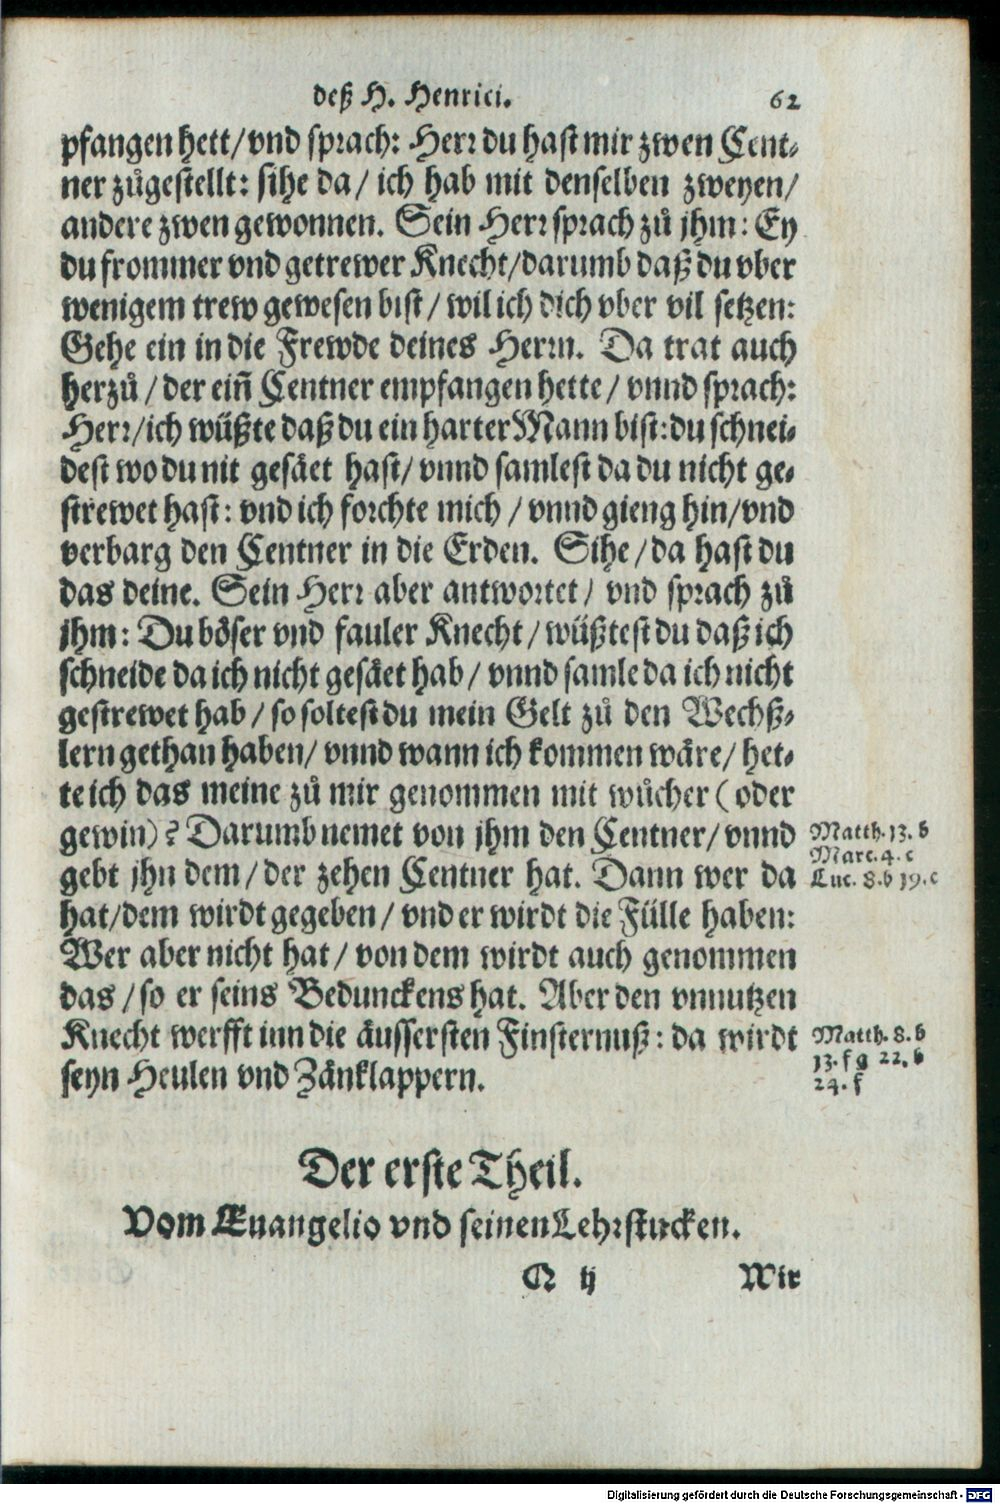 deß H. Henrici. 62
pfangen hett/ vnd sprach: Herr du hast mir zwen Cent-
ner zůgestellt: sihe da/ ich hab mit denselben zweyen/
andere zwen gewonnen. Sein Herr sprach zů jhm: Ey
du frommer vnd getrewer Knecht/ darumb daß du vber
wenigem trew gewesen bist/ wil ich dich vber vil setzen:
Gehe ein in die Frewde deines Herrn. Da trat auch
herzů/ der eiñ Centner empfangen hette/ vnnd sprach:
Herr/ ich wüßte daß du ein harter Mann bist: du schnei-
dest wo du nit gesäet hast/ vnnd samlest da du nicht ge-
strewet hast: vnd ich forchte mich/ vnnd gieng hin/ vnd
verbarg den Centner in die Erden. Sihe/ da hast du
das deine. Sein Herr aber antwortet/ vnd sprach zů
jhm: Du böser vnd fauler Knecht/ wüßtest du daß ich
schneide da ich nicht gesäet hab/ vnnd samle da ich nicht
gestrewet hab/ so soltest du mein Gelt zů den Wechß-
lern gethan haben/ vnnd wann ich kommen wäre/ het-
te ich das meine zů mir genommen mit wůcher (oder
gewin)? Darumb nemet von jhm den Centner/ vnnd
Matth. 13. b
gebt jhn dem/ der zehen Centner hat. Dann wer da
Marc. 4. c
Luc. 8. b 19. c
hat/ dem wirdt gegeben/ vnd er wirdt die Fülle haben:
Wer aber nicht hat/ von dem wirdt auch genommen
das/ so er seins Bedunckens hat. Aber den vnnutzen
Knecht werfft inn die äussersten Finsternuß: da wirdt
Matth. 8. b
13. f g 22. b
24. f
seyn Heulen vnd Zänklappern.
Der erste Theil.
Vom Euangelio vnd seinen Lehrstucken.
Q ij Wir
Digitalisierung gefördert durch die Deutsche Forschungsgemeinschaft - DFG